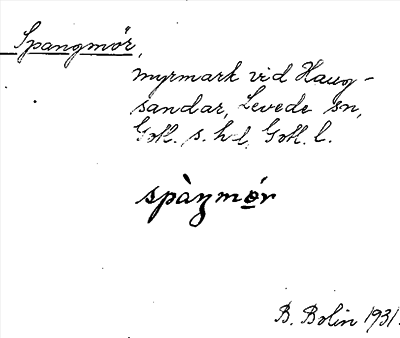 Spangmȯr,
myrmark vid Haug-
sandar, Levede sn,
Gotl. s. hd, Gotl. l.
spàŋmo̱r
B. Bolin 1931.